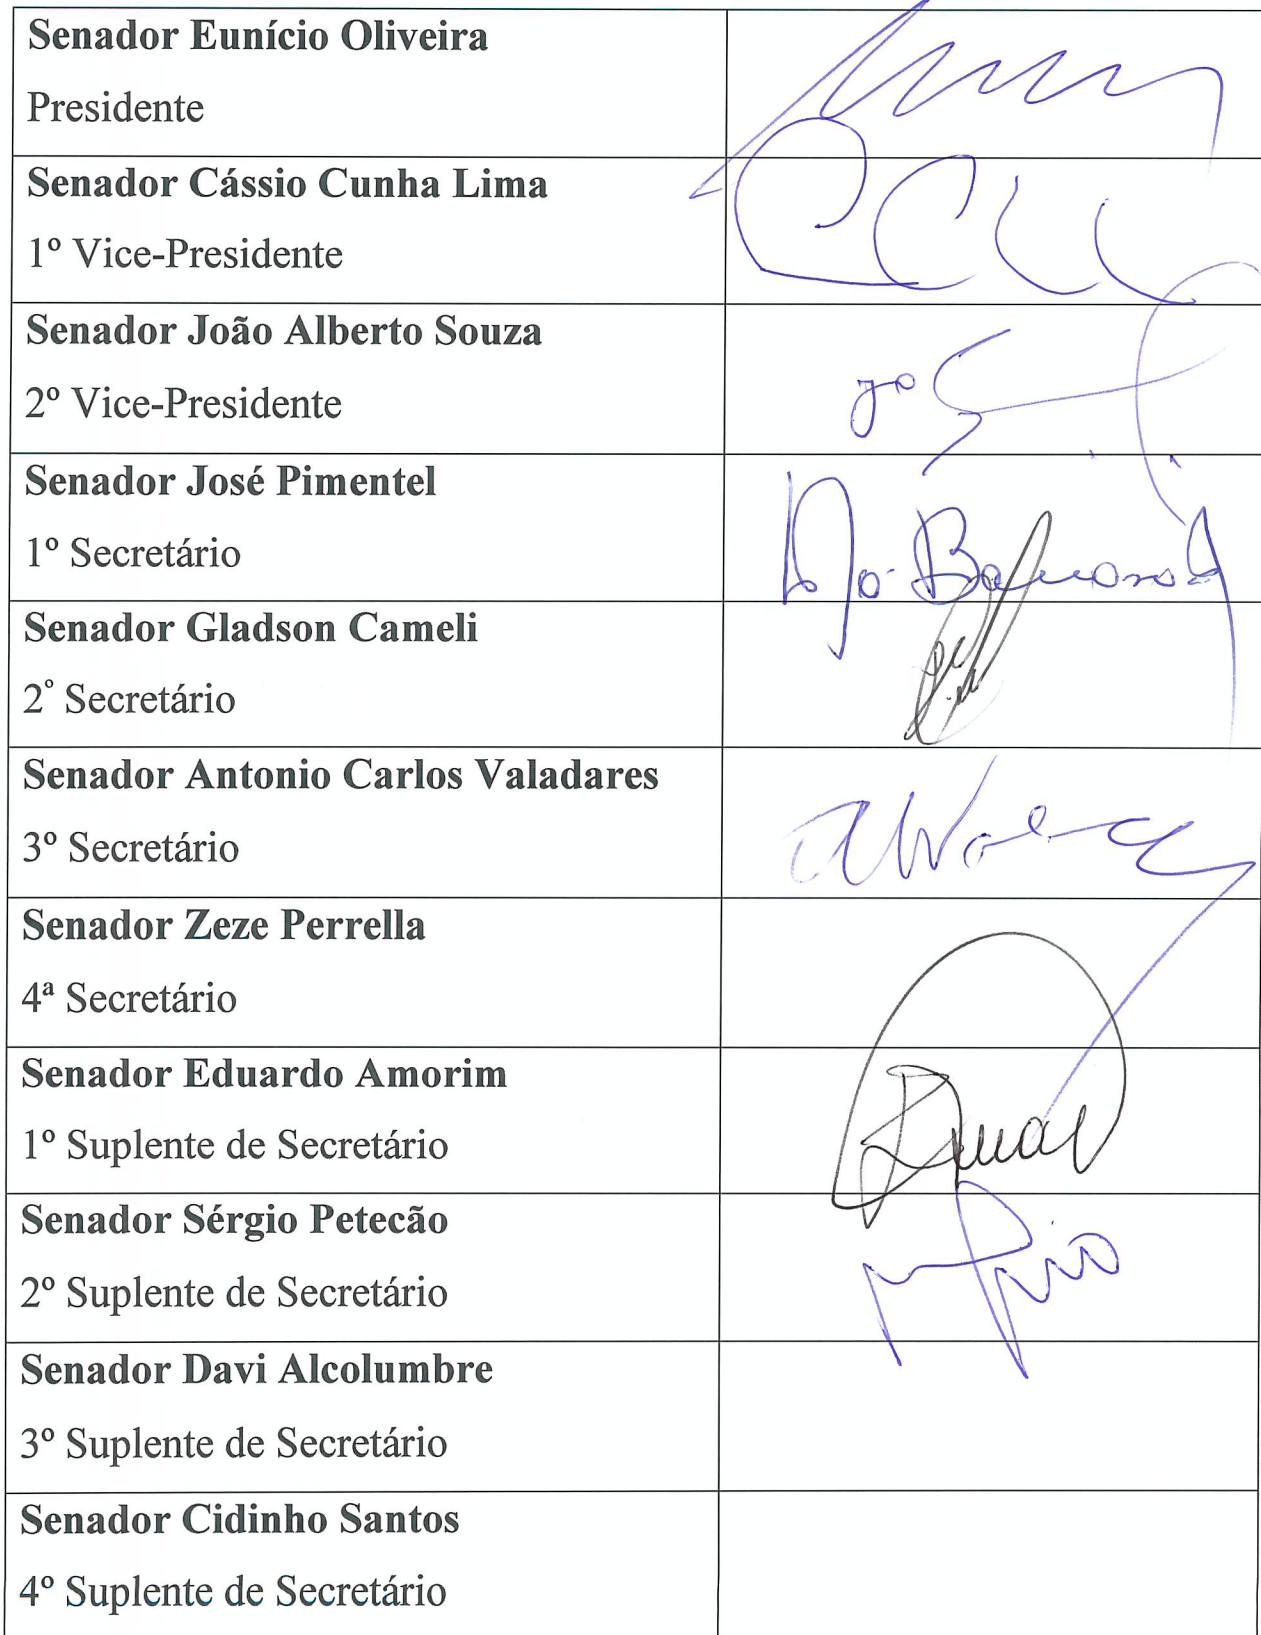 Senador Eunício Oliveira
Presidente
Senador Cássio Cunha Lima
1º Vice-Presidente
Senador João Alberto Souza
2º Vice-Presidente
Senador José Pimentel
1º Secretário
Senador Gladson Cameli
2° Secretário
Senador Antonio Carlos Valadares
3º Secretário
Senador Zeze Perrella
4ª Secretário
Senador Eduardo Amorim
1º Suplente de Secretário
Senador Sérgio Petecão
2º Suplente de Secretário
Senador Davi Alcolumbre
3º Suplente de Secretário
Senador Cidinho Santos
4º Suplente de Secretário